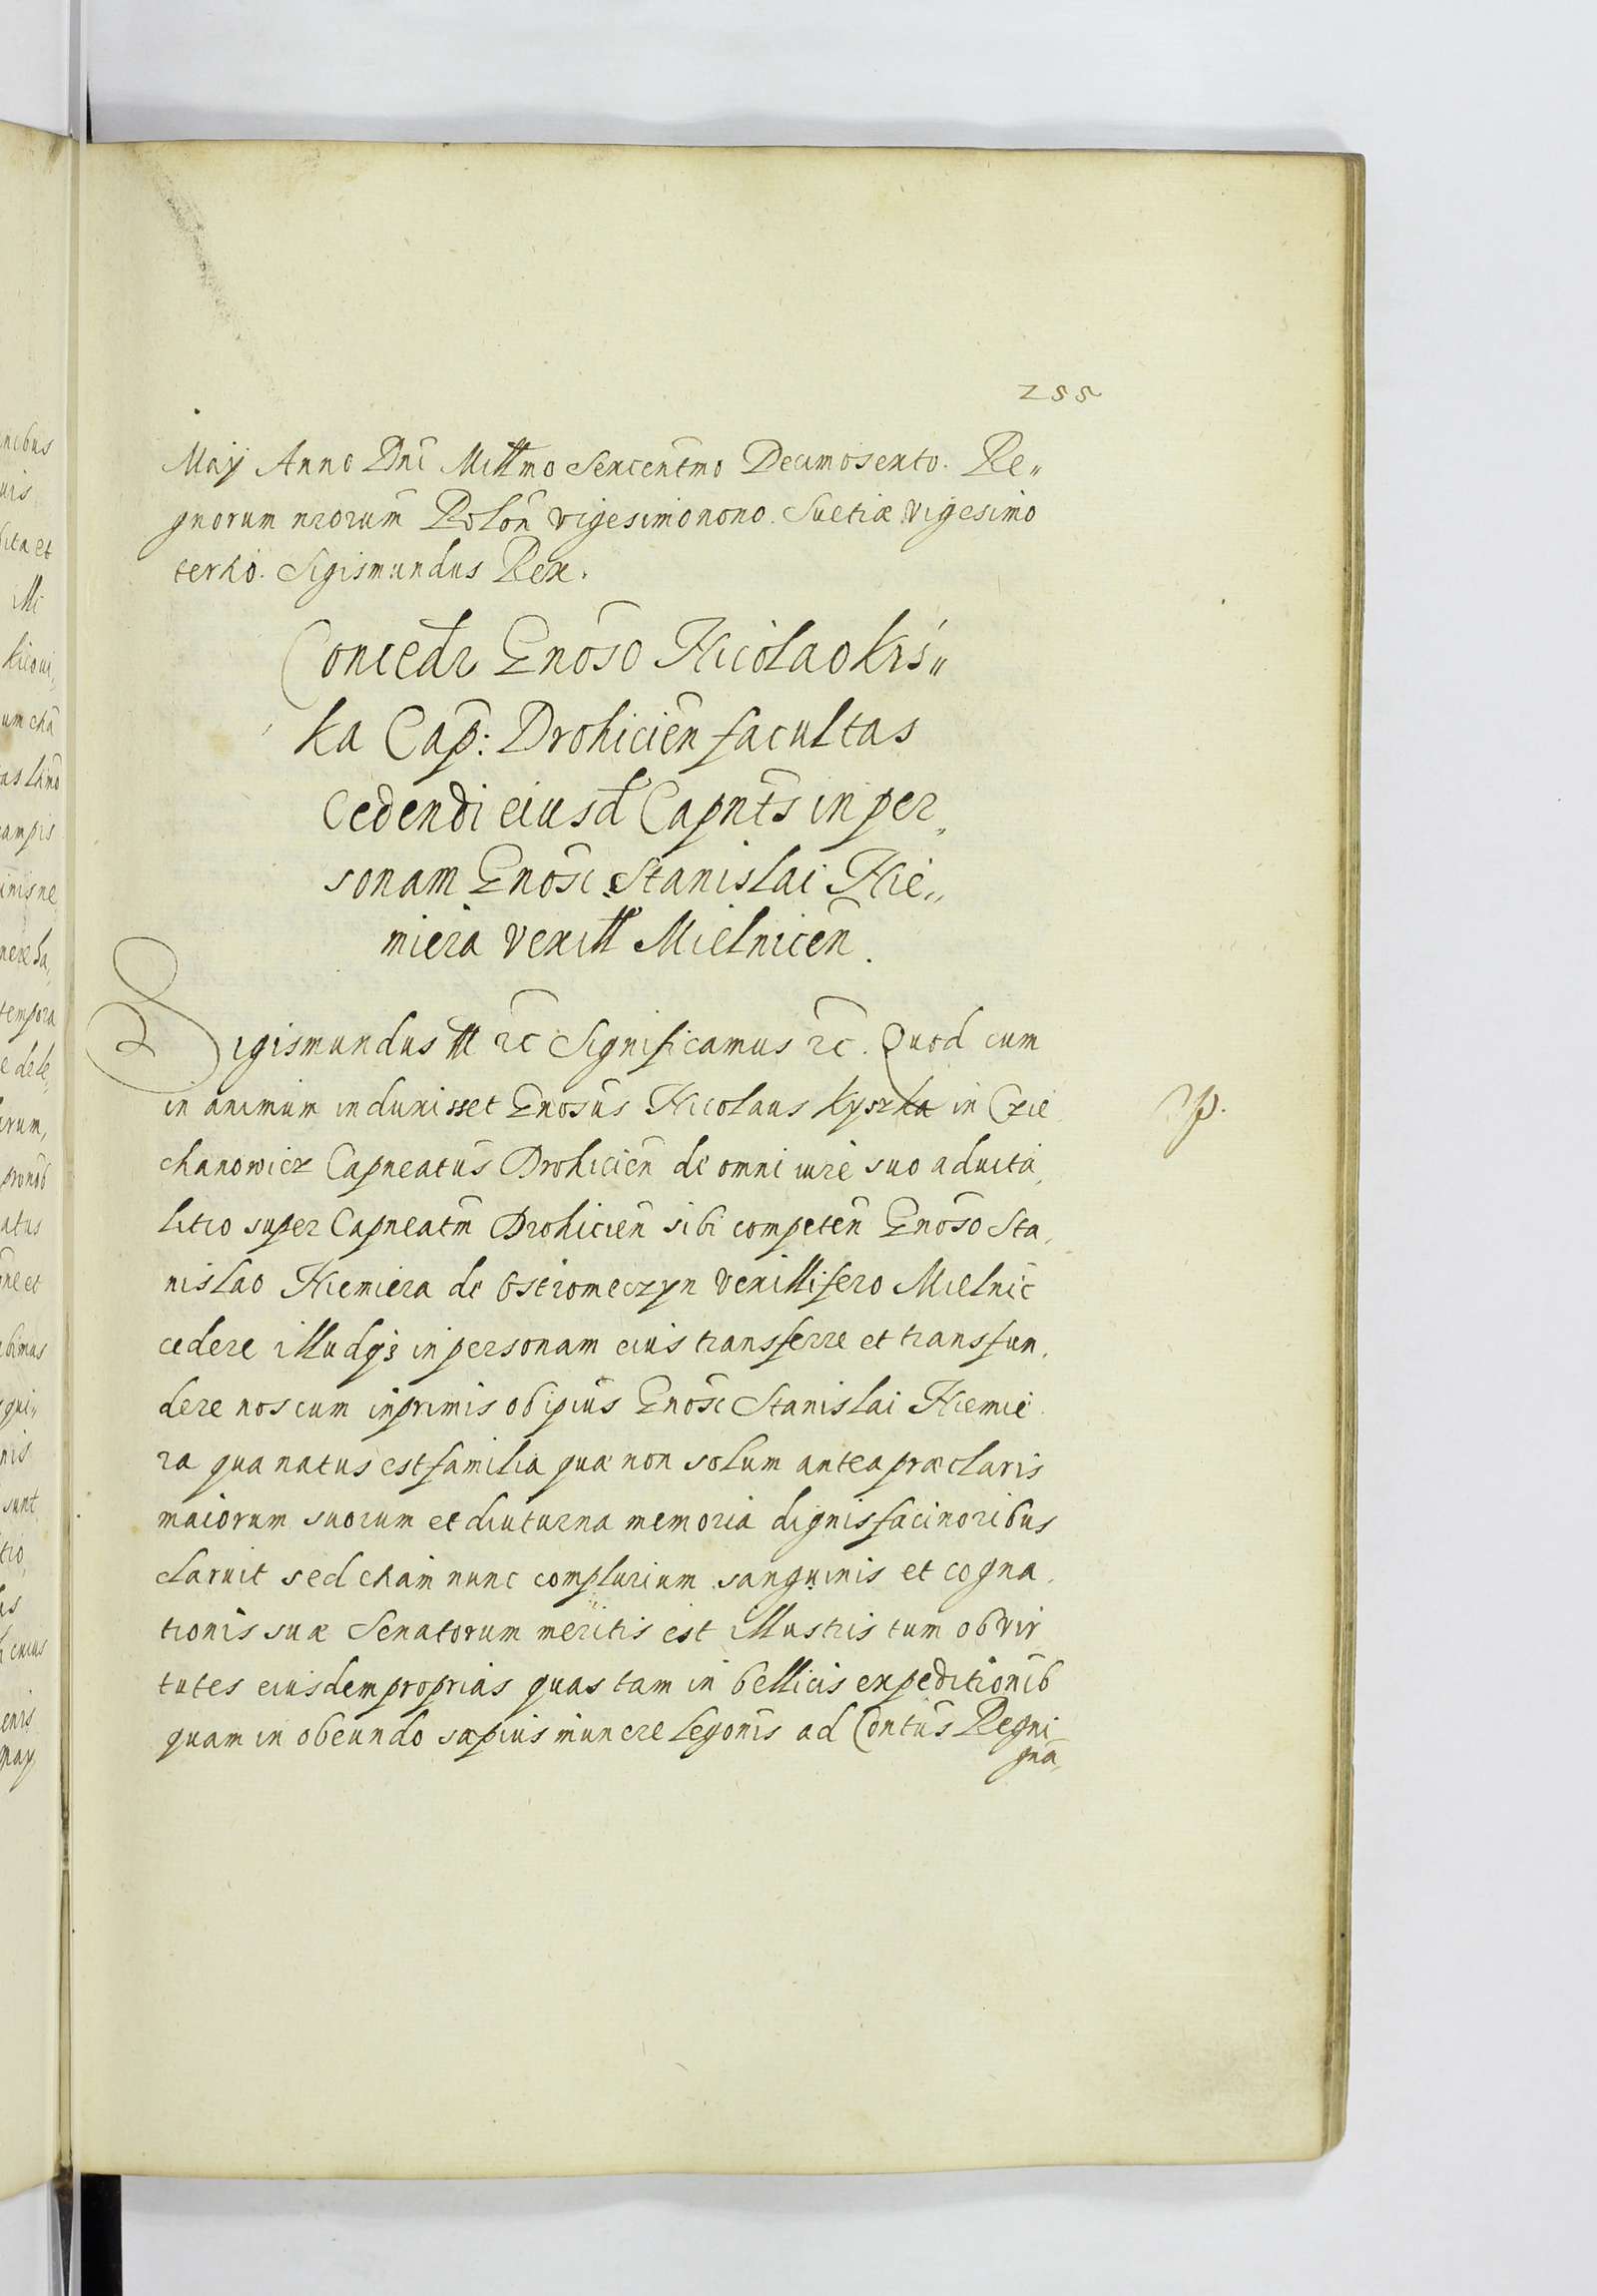 255
Maÿ Anno Dni Millmo Sexcentmo Decimosexto. Re„
gnorum nrorum Polon vigesimonono. Suetiæ vigesimo
tertio. Sigismundus Rex.
Concedr Gnoso Nicolao Kis„
ka Cap: Drohicien facultas
Cedendi eiusd Capnts in per„
sonam Gnosi Stanislai Nie„
miera vexill Mielnicen.
Sigismundus III etc Significamus etc. Quod cum
in animum induxisset Gnosus Nicolaus Kyszka in Czie
chanowicz Capneatus Drohicien de omni iure suo advita,
litio super Capneatm Drohicien sibi competen Gnoso Sta,
nislao Niemiera de Ostromeczyn Vexillifero Mielnic
cedere illudq3 in personam eius transferre et transfun,
dere nos cum inprimis ob ipius Gnosi Stanislai Niemie
ra qua natus est familia quæ non solum antea præclaris
maiorum suorum et diuturna memoria dignis facinoribus
claruit sed etiam nunc complurium sanguinis et cogna,
tionis suæ Senatorum meritis est illustris tum ob vir
tutes eiusdem proprias quas tam in bellicis expeditionib
quam in obeundo sæpius munere legonis ad Contus Regni
gna,